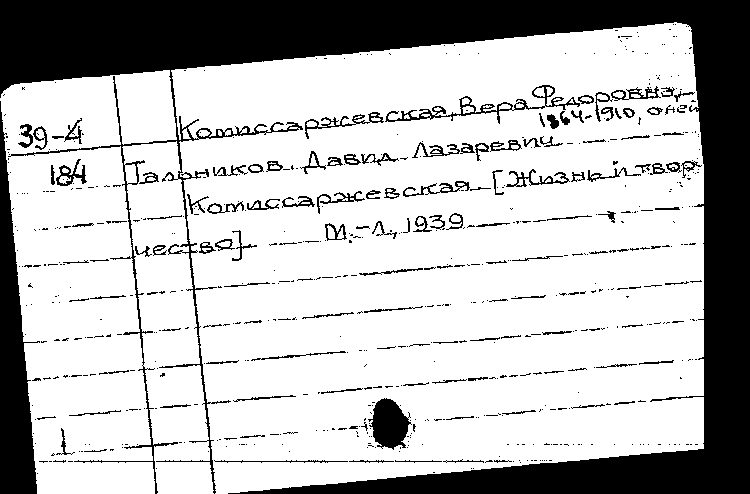 Комиссаржевская, Вера Федоровна, -
1864-1910, о ней
39-4
184
Тальников, Давид Лазаревич
Комиссаржевская [Жизнь и твор
чество] М.-Л., 1939
1